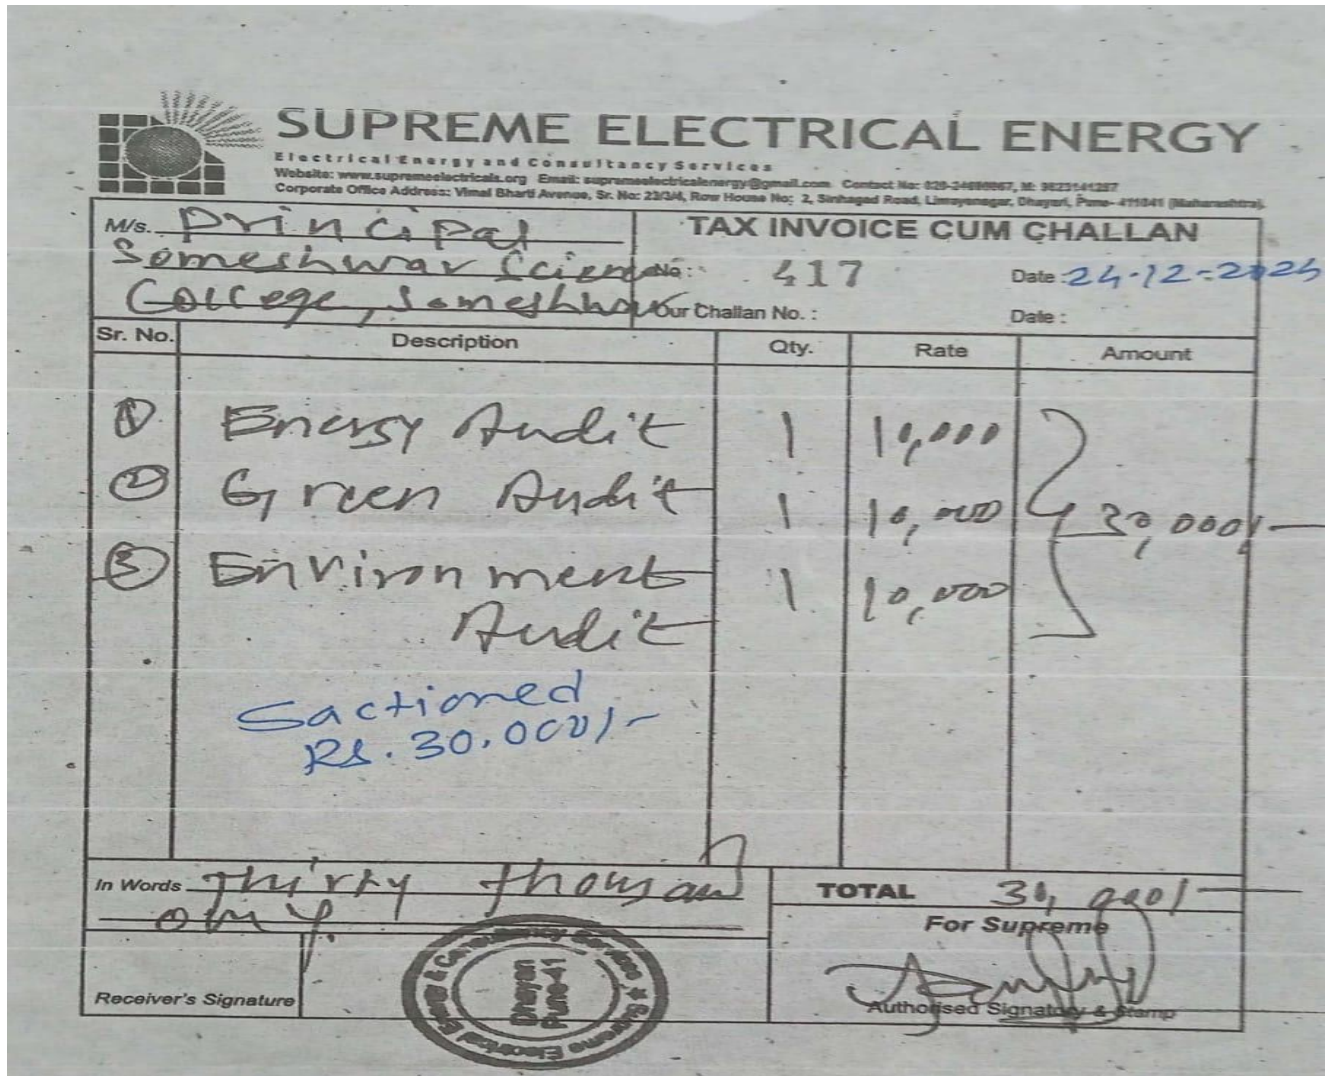 SUPREME ELECTRICAL ENERGY
Electrical Energy and Consultancy Services
Website: www.supremeelectricals.org Email: supremeelectricalenergy@gmail.com Contact No: 020-24690867, M: 9823141287
Corporate Office Address: Vimal Bharti Avenue, Sr. No: 23/3/4, Row House No; 2, Sinhagad Road, Limayenagar, Dhayari, Pune- 411041 (Maharashtra).
M/s. Principal
Someshwar Science
College, Someshwar
TAX INVOICE CUM CHALLAN
No : 417 Date : 24-12-2024
Your Challan No. : Date :
Sr. No. Description Qty. Rate Amount
1 Energy Audit 1 10,000
2 Green Audit 1 10,000 30,000/-
3 Environment 1 10,000
Audit
Sactioned
Rs. 30,000/-
In Words Thirty thousand
only
TOTAL 30,000/-
For Supreme
Receiver's Signature
Dhayari
Pune-41
Authorised Signatory & Stamp